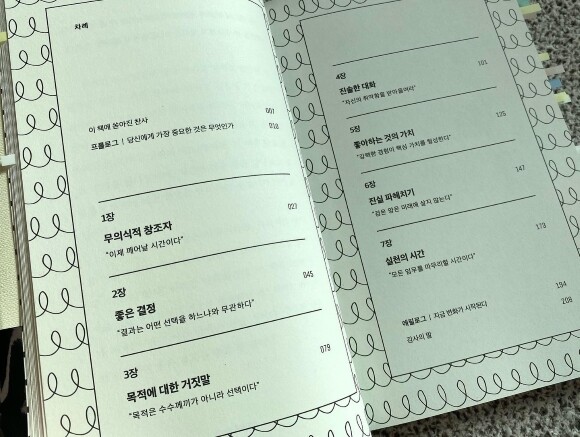 차례
이 책에 쏟아진 찬사 007
프롤로그 | 당신에게 가장 중요한 것은 무엇인가 010
1장 021
무의식적 창조자
"이제 깨어날 시간이다"
2장 045
좋은 결정
"결과는 어떤 선택을 하느냐와 무관하다"
3장 079
목적에 대한 거짓말
"목적은 수수께끼가 아니라 선택이다"
4장 101
진솔한 대화
"자신의 취약함을 받아들여라"
5장 125
좋아하는 것의 가치
"강력한 경험이 핵심 가치를 형성한다"
6장 147
진실 파헤치기
"검은 망은 미래에 살지 않는다"
7장 173
실천의 시간
"모든 임무를 마무리할 시간이다"
에필로그 | 지금 변화가 시작된다 194
감사의 말 208